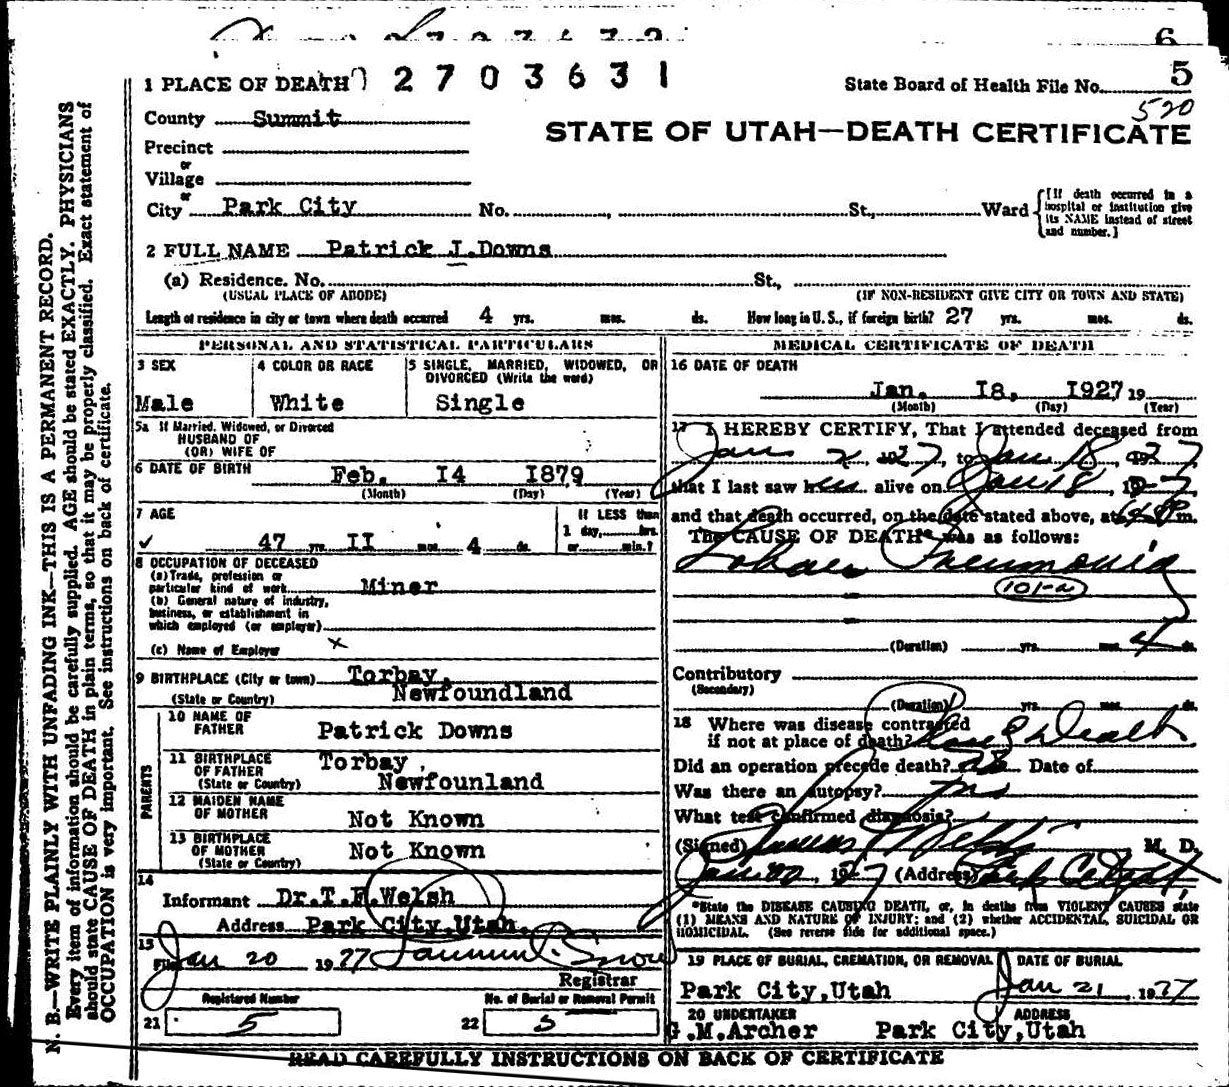 6
1 PLACE OF DEATH 2703631 State Board of Health File No. 5
520
County Summit
STATE OF UTAH—DEATH CERTIFICATE
Precinct
or
Village
or
City Park City No. , St., Ward [If death occurred in a hospital or institution give its NAME instead of street and number.]
2 FULL NAME Patrick J.Downs
(a) Residence. No. St.,
(USUAL PLACE OF ABODE) (IF NON-RESIDENT GIVE CITY OR TOWN AND STATE)
Length of residence in city or town where death occurred 4 yrs. mos. ds. How long in U. S., if foreign birth? 27 yrs. mos. ds.
PERSONAL AND STATISTICAL PARTICULARS
3 SEX 4 COLOR OR RACE 5 SINGLE, MARRIED, WIDOWED, OR DIVORCED (Write the word)
Male White Single
5a If Married, Widowed, or Divorced
HUSBAND OF
(OR) WIFE OF
6 DATE OF BIRTH Feb. I4 I879
(Month) (Day) (Year)
7 AGE IF LESS than
1 day, hrs.
✓ 47 yrs. II mos. 4 ds. or min.?
8 OCCUPATION OF DECEASED
(a) Trade, profession or
particular kind of work Miner
(b) General nature of industry,
business, or establishment in
which employed (or employer)
(c) Name of Employer x
9 BIRTHPLACE (City or town) Torbay,
(State or Country) Newfoundland
PARENTS
10 NAME OF
FATHER Patrick Downs
11 BIRTHPLACE
OF FATHER Torbay,
(State or Country) Newfounland
12 MAIDEN NAME
OF MOTHER Not Known
13 BIRTHPLACE
OF MOTHER Not Known
(State or Country)
14
Informant Dr.T.F.Welsh
Address Park City,Utah.
15
Filed Jan 20 1927
Registrar
Registered Number No. of Burial or Removal Permit
21 5 22 5
MEDICAL CERTIFICATE OF DEATH
16 DATE OF DEATH
Jan. I8, I927 19
(Month) (Day) (Year)
17 I HEREBY CERTIFY, That I attended deceased from
Jan 2, 1927, to Jan 18, 1927
that I last saw him alive on Jan 18, 1927
and that death occurred, on the date stated above, at m.
The CAUSE OF DEATH* was as follows:
Lobar Pneumonia
101-a
(Duration) yrs. mos. 4 ds.
Contributory
(Secondary)
(Duration) yrs. mos. ds.
18 Where was disease contracted
if not at place of death? Death
Did an operation precede death? Date of
Was there an autopsy? no
What test confirmed diagnosis?
(Signed) M. D.
Jan 20, 1927 (Address) Park City
*State the DISEASE CAUSING DEATH, or, in deaths from VIOLENT CAUSES state
(1) MEANS AND NATURE OF INJURY; and (2) whether ACCIDENTAL, SUICIDAL OR
HOMICIDAL. (See reverse side for additional space.)
19 PLACE OF BURIAL, CREMATION, OR REMOVAL DATE OF BURIAL
Park City,Utah Jan 21, 1927
20 UNDERTAKER ADDRESS
G.M.Archer Park City,Utah
READ CAREFULLY INSTRUCTIONS ON BACK OF CERTIFICATE
N. B.—WRITE PLAINLY WITH UNFADING INK—THIS IS A PERMANENT RECORD.
Every item of information should be carefully supplied. AGE should be stated EXACTLY. PHYSICIANS
should state CAUSE OF DEATH in plain terms, so that it may be properly classified. Exact statement of
OCCUPATION is very important. See instructions on back of certificate.